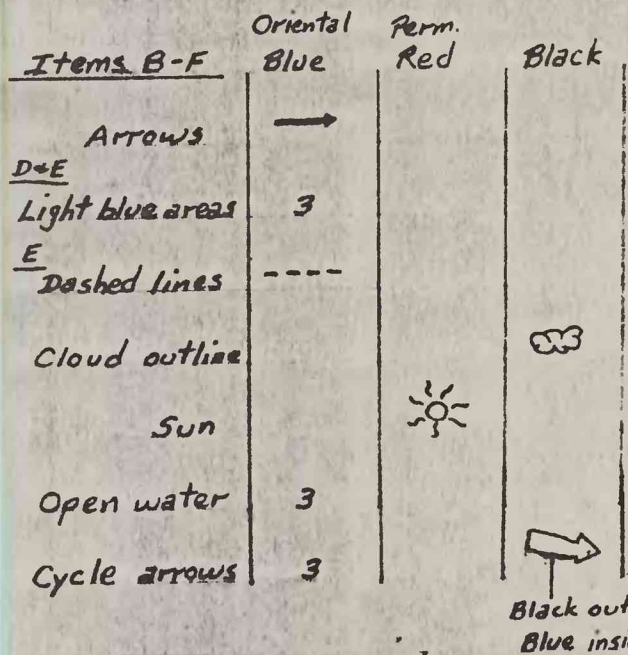 Oriental Perm.
Items B-F Blue Red Black
Arrows
D&E
Light blue areas 3
E
Dashed lines
Cloud outline
Sun
Open water 3
Cycle arrows 3
Black out
Blue insi